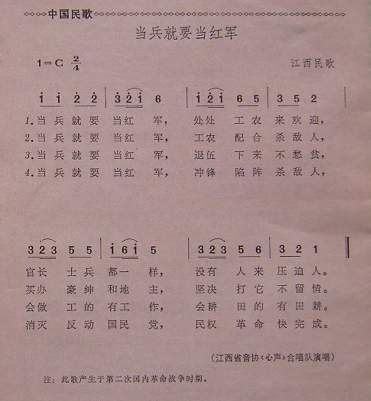 中国民歌
当兵就要当红军
1=C 2/4
江西民歌
1 1 2 2 | 3 2 1 6 | 1 2 1 6 5 | 5 3 2 |
1.当兵就要当红军,处处工农来欢迎,
2.当兵就要当红军,工农配合杀敌人,
3.当兵就要当红军,退伍下来不愁贫,
4.当兵就要当红军,冲锋陷阵杀敌人,
3 2 3 5 5 | 1 6 1 5 | 3 2 3 5 6 | 3 2 1 ‖
官长士兵都一样,没有人来压迫人。
买办豪绅和地主,坚决打它不留情。
会做工的有工作,会耕田的有田耕。
消灭反动国民党,民权革命快完成。
(江西省音协《心声》合唱队演唱)
注:此歌产生于第二次国内革命战争时期。